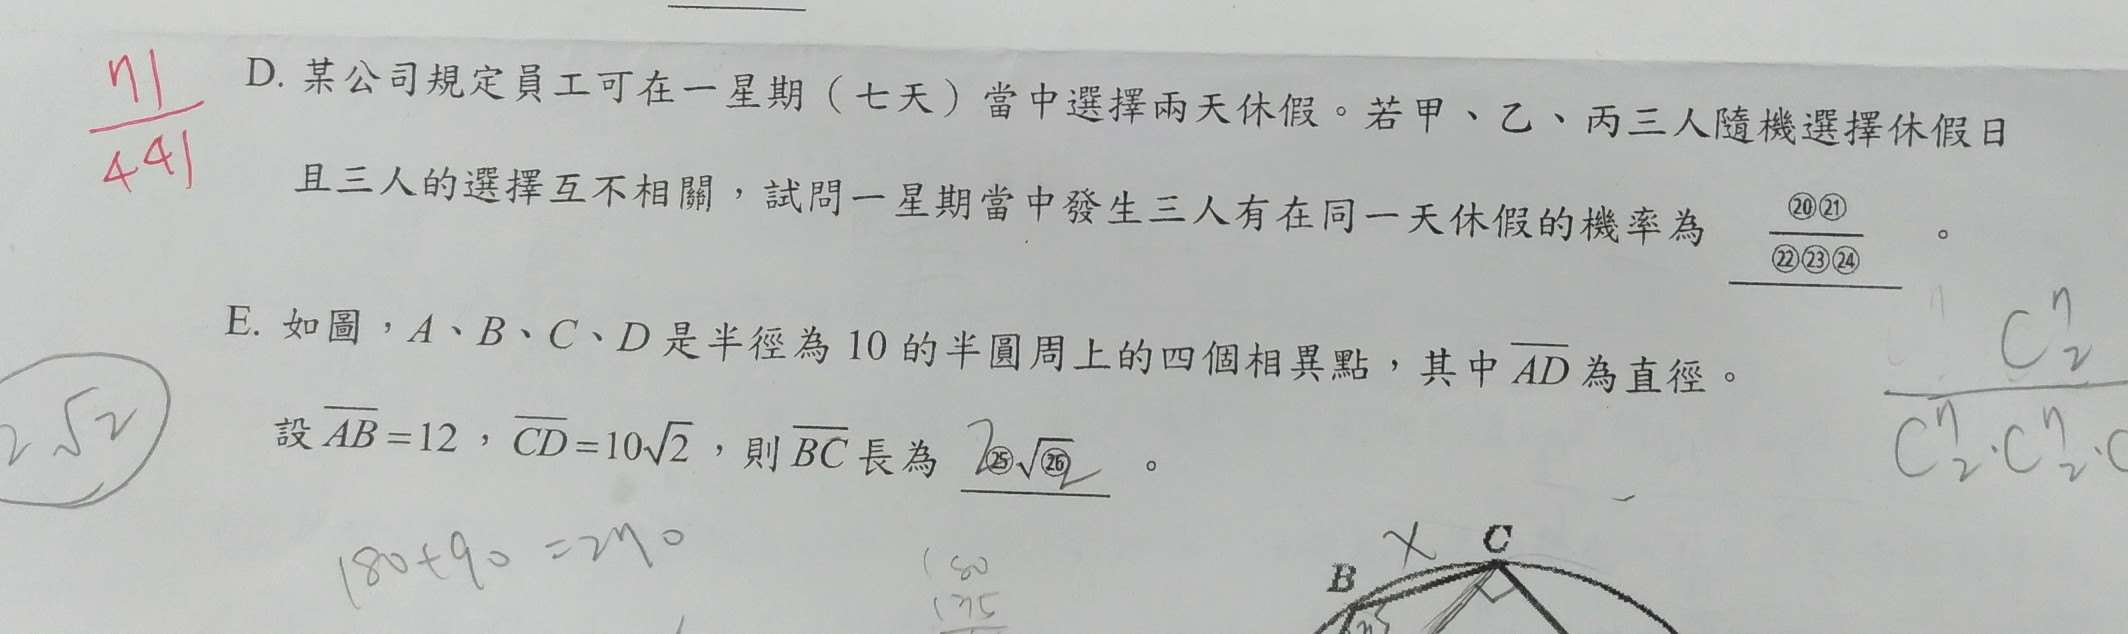 71
441
D. 某公司規定員工可在一星期（七天）當中選擇兩天休假。若甲、乙、丙三人隨機選擇休假日
且三人的選擇互不相關，試問一星期當中發生三人有在同一天休假的機率為 ⑳㉑ / ㉒㉓㉔ 。
E. 如圖，A、B、C、D是半徑為10的半圓周上的四個相異點，其中AD為直徑。
設AB=12，CD=10√2，則BC長為 ㉕√㉖ 。
2√2
C⁷₂
C⁷₂·C⁷₂·C
180+90=270
180
135
X
C
B